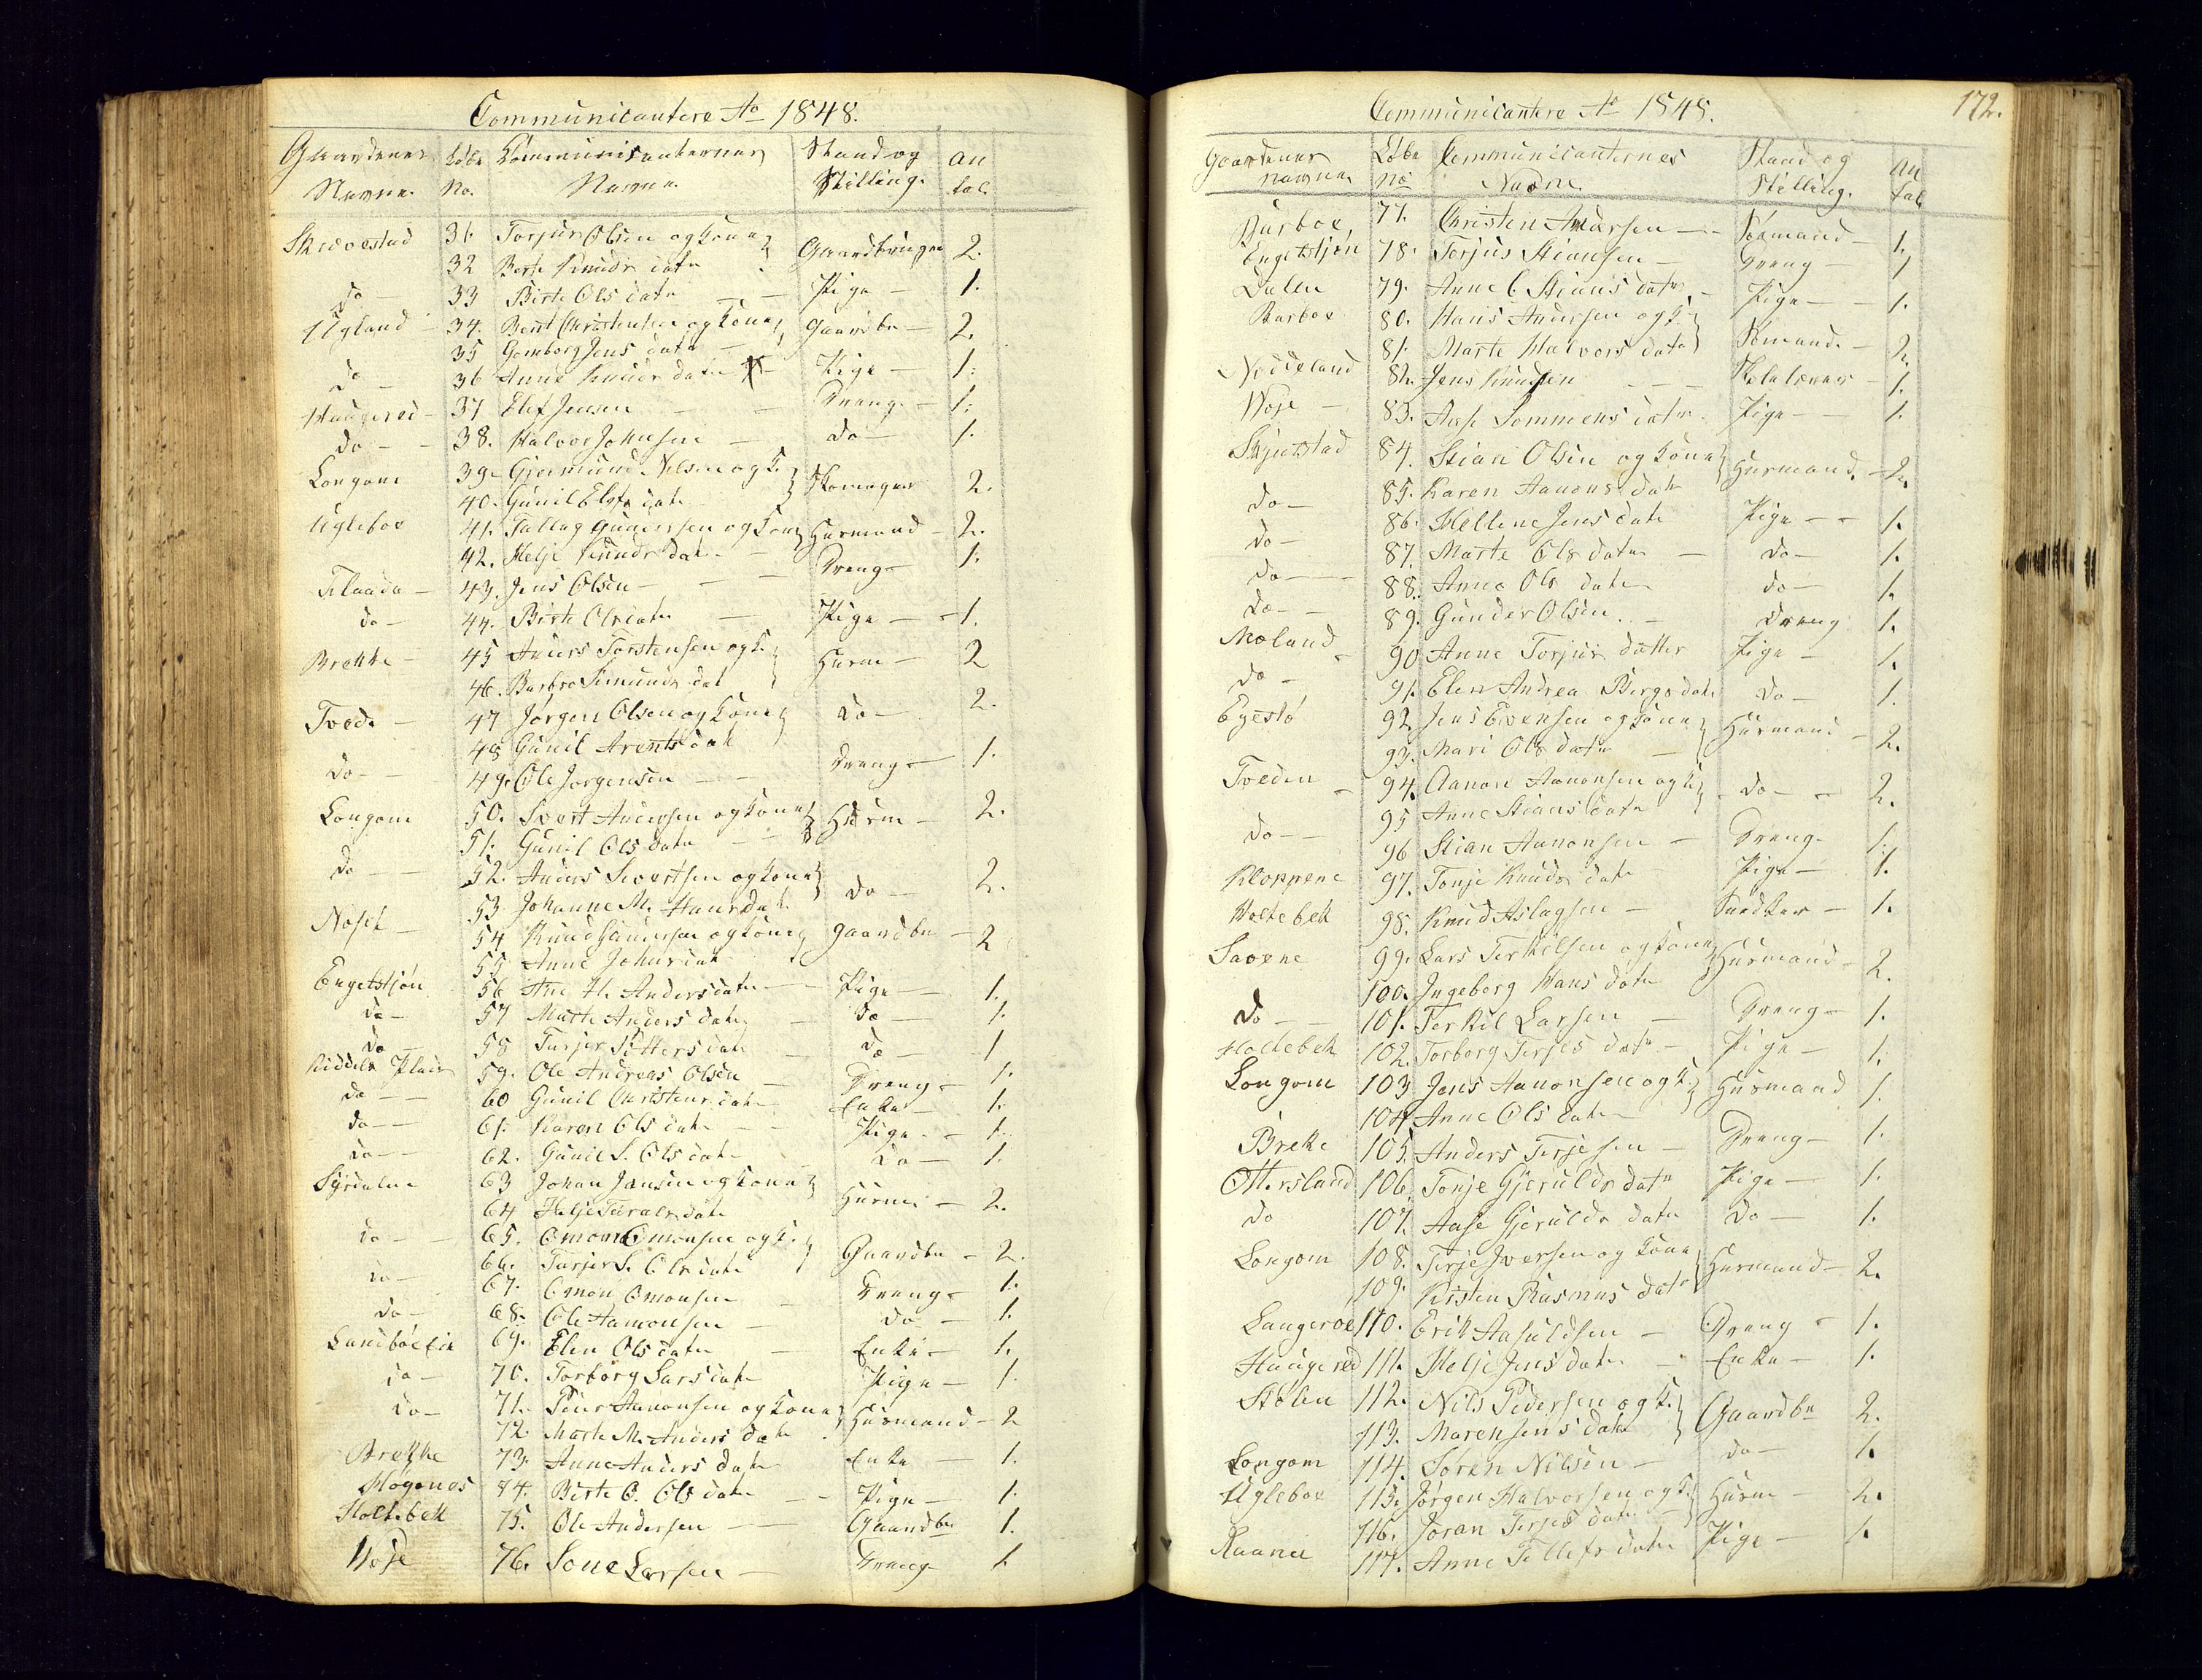 Communicantere Ao 1848.
Gaardenes Navne. Løbe No. Communicanternes Navne. Stand og Stilling. Antal.
31. Torjus Olsen og Kone Gaardbruger 2.
32 Berte Knuds datr
do 33 Birte Ols datr Pige 1.
Ugland 34. Bent Christensen og Kone Gaardbr 2.
35 Gomborg Jens datr
do 36 Anne Knuds datr Pige 1.
Haugered 37 Elef Jensen Dreng 1.
do 38. Halvor Johnsen do 1.
Longom 39. Gjermund Nilsen og K. Skomager 2.
40. Gunil Elefs datr
Uglebox 41. Tallag Gundersen og Kone Husmand 2.
42. Helje Knuds datr
Flaada 43. Jens Olsen Dreng 1.
do 44. Birte Ols datr Pige 1.
Brekke 45 Anders Torstensen og K. Husm 2
46. Barbro Simunds dat
Tvede 47 Jørgen Olsen og Kone do 2.
48 Gunil Arents dat
do 49. Ole Jorgensen Dreng 1.
Longom 50. Sivert Andersen og Kone Husm 2.
51. Gunil Ols datr
do 52. Anders Sivertsen og Kone do 2.
53 Johanne M. Hans dat
54 Knud Gundersen og Kone Gaardbr 2
55 Anne Johns dat
Engetstjøn 56 Ane H. Anders datr Pige 1.
do 57 Marte Anders datr do 1.
do 58 Turjer datr do 1
Plads 59. Ole Andreas Olsen Dreng 1.
do 60 Gunil Christens datr Enke 1.
do 61. Karen Ols datr Pige 1.
do 62. Gunil S. Ols datr do 1.
Syrdalen 63 Johan Jensen og Kone Husm 2.
64 Helje Tarals datr
do 65. Omon Omonsen og K. Gaardbr 2.
66. Turjer S. Ols datr
do 67. Omon Omonsen Dreng 1.
do 68. Ole Aamonsen do 1.
69. Elen Ols datr Enke 1.
do 70. Torborg Lars datr Pige 1.
do 71. Aanonsen og Kone Husmand 2
72. Marte M. Anders datr
Brekke 73. Anne Anders datr Enke 1.
Høgenes 74. Birte O. Ols datr Pige 1.
Holtebek 75. Ole Andersen Gaardbr 1.
76. Sone Larsen Dreng 1
Communicantere Ao 1848. 172.
Gaardenes navne. Løbe No Communicanternes Navne. Stand og Stilling. Antal
Burboe 77. Christen Andersen Sømand 1.
Engetstjøn 78. Torjus Stiansen Dreng 1
Dalen 79. Anne C. Stians datr Pige 1.
80. Hans Andersen og K. Sømand 2.
81. Marte Halvors datr
Nøddeland 82. Jens Knudsen Skolelærer 1.
83. Aase Tommens datr Pige 1.
84. Stian Olsen og Kone Husmand. 2.
85. Karen Aanons datr
do 86. Helline Jens datr Pige 1.
do 87. Marte Ols datr do 1.
do 88. Anne Ols datr do 1.
do 89. Gunder Olsen Dreng 1.
Moland 90 Anne Torjus datter Pige 1.
do 91. Elen Andrea Bergs datr do 1.
92 Jens Evensen og Kone Husmand 2.
93. Mari Ols datr
Tveden 94. Aanon Aanonsen og K. do 2.
95 Anne Stians datr
do 96 Stian Aanonsen Dreng 1.
Kloppene 97. Tonje Knuds datr Pige 1.
Holtebek 98. Knud Aslagsen Snedker 1.
99. Lars Terkilsen og Kone Husmand 2.
100. Ingeborg Hans datr
do 101. Terkil Larsen Dreng 1.
Holtebek 102. Torborg Terjes datr Pige 1.
Longom 103 Jens Aanonsen og K. Husmand 1.
104 Anne Ols datr
Breke 105. Anders Terjesen Dreng 1.
Ottersland 106. Tonje Gjerulds datr Pige 1.
do 107. Aase Gjerulds datr do 1.
Longom 108. Terje Iversen og Kone Husmand 2.
109. Kisten Rasmus datr
Langeroe 110. Erik Aasuldsen Dreng 1.
Haugered 111. Helje Jens datr Enke 1.
Stølen 112. Nils Pedersen og K. Gaardbr 2.
113. Maren Jens datr
Longom 114. Søren Nilsen do 1.
Uglebox 115. Jørgen Halvorsen og K. Husm 2.
116. Joran Terjes datr
117. Anne Tellefs datr Pige 1.